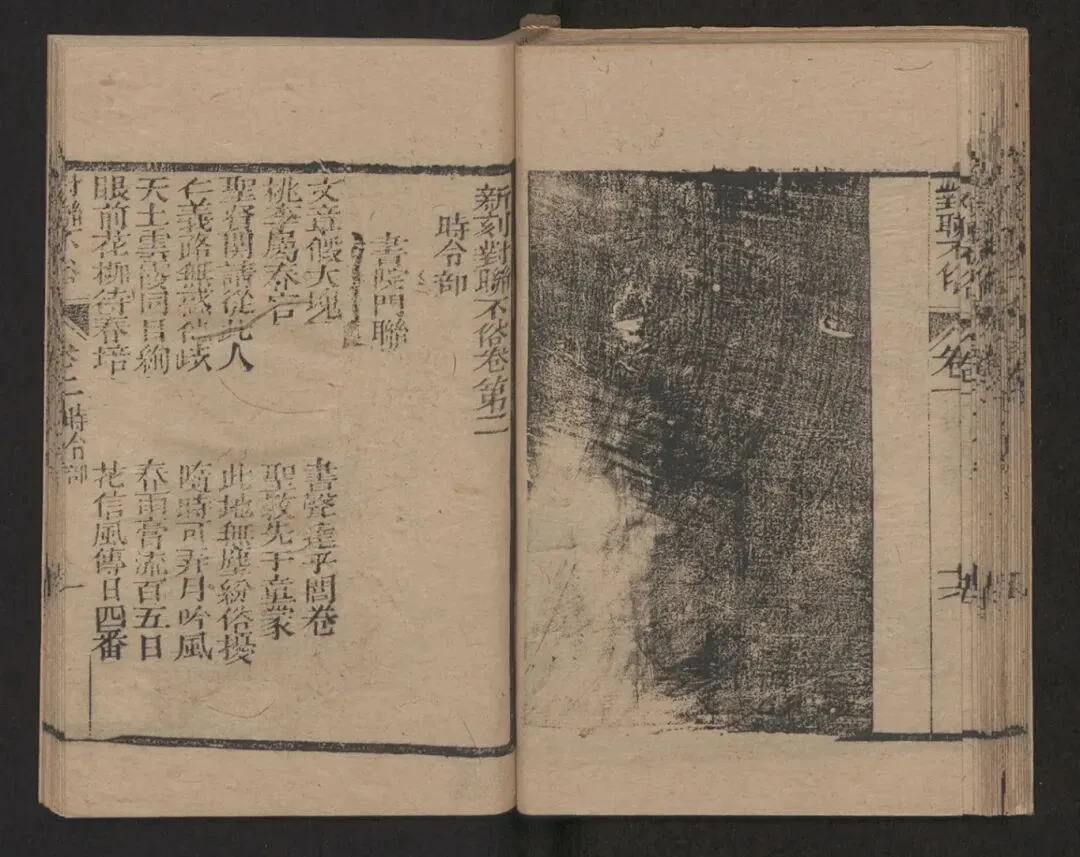 對聯不俗 卷一
新刻對聯不俗卷第二
時令部
書院門聯
文章假大塊 書聲達乎閭巷
桃李屬春官 聖教先于童蒙
聖賢関請從此入 此地無塵紛俗擾
仁義路無惑他歧 隨時可弄月吟風
天上雲霞同日絢 春雨膏流百五日
眼前花柳待春培 花信風傳日四番
對聯不俗 卷二 時令部 一